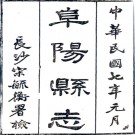 中華民國七年元月
阜陽縣志
長沙宗毓衡署檢